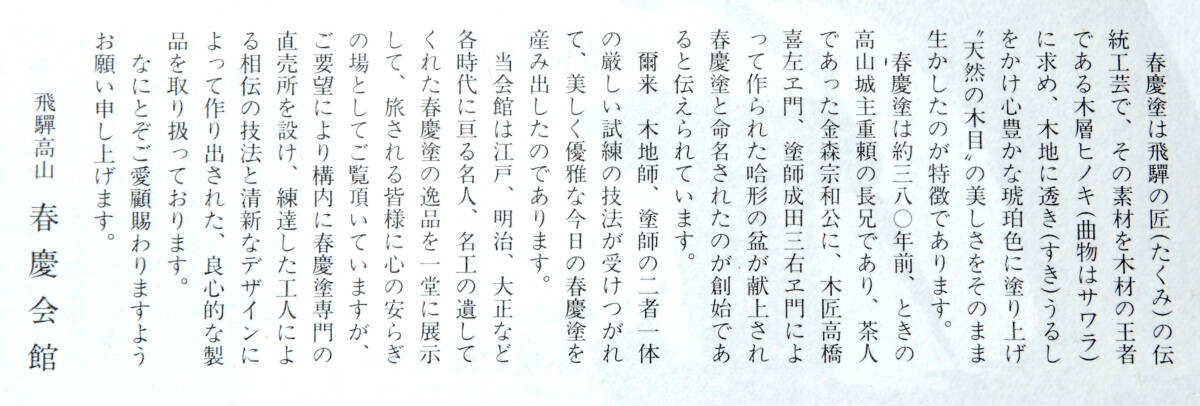 春慶塗は飛驒の匠(たくみ)の伝
統工芸で、その素材を木材の王者
である木層ヒノキ(曲物はサワラ)
に求め、木地に透き(すき)うるし
をかけ心豊かな琥珀色に塗り上げ
〝天然の木目〟の美しさをそのまま
生かしたのが特徴であります。
春慶塗は約三八〇年前、ときの
高山城主重頼の長兄であり、茶人
であった金森宗和公に、木匠高橋
喜左ヱ門、塗師成田三右ヱ門によ
って作られた哈形の盆が献上され
春慶塗と命名されたのが創始であ
ると伝えられています。
爾来 木地師、塗師の二者一体
の厳しい試練の技法が受けつがれ
て、美しく優雅な今日の春慶塗を
産み出したのであります。
当会館は江戸、明治、大正など
各時代に亘る名人、名工の遺して
くれた春慶塗の逸品を一堂に展示
して、旅される皆様に心の安らぎ
の場としてご覧頂いていますが、
ご要望により構内に春慶塗専門の
直売所を設け、練達した工人によ
る相伝の技法と清新なデザインに
よって作り出された、良心的な製
品を取り扱っております。
なにとぞご愛顧賜わりますよう
お願い申し上げます。
飛驒高山 春慶会館